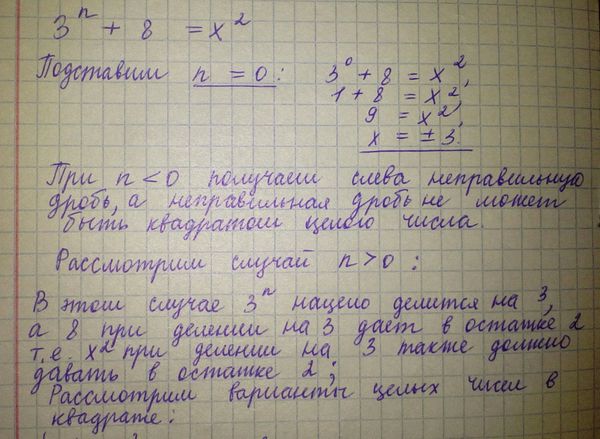 3ⁿ + 8 = x²
Подставим n = 0: 3⁰ + 8 = x²,
1 + 8 = x²,
9 = x²,
x = ± 3.
При n < 0 получаем слева неправильную
дробь, а неправильная дробь не может
быть квадратом целого числа.
Рассмотрим случай n > 0 :
В этом случае 3ⁿ нацело делится на 3,
а 8 при делении на 3 дает в остатке 2
т.е. x² при делении на 3 также должно
давать в остатке 2;
Рассмотрим варианты целых чисел в
квадрате: